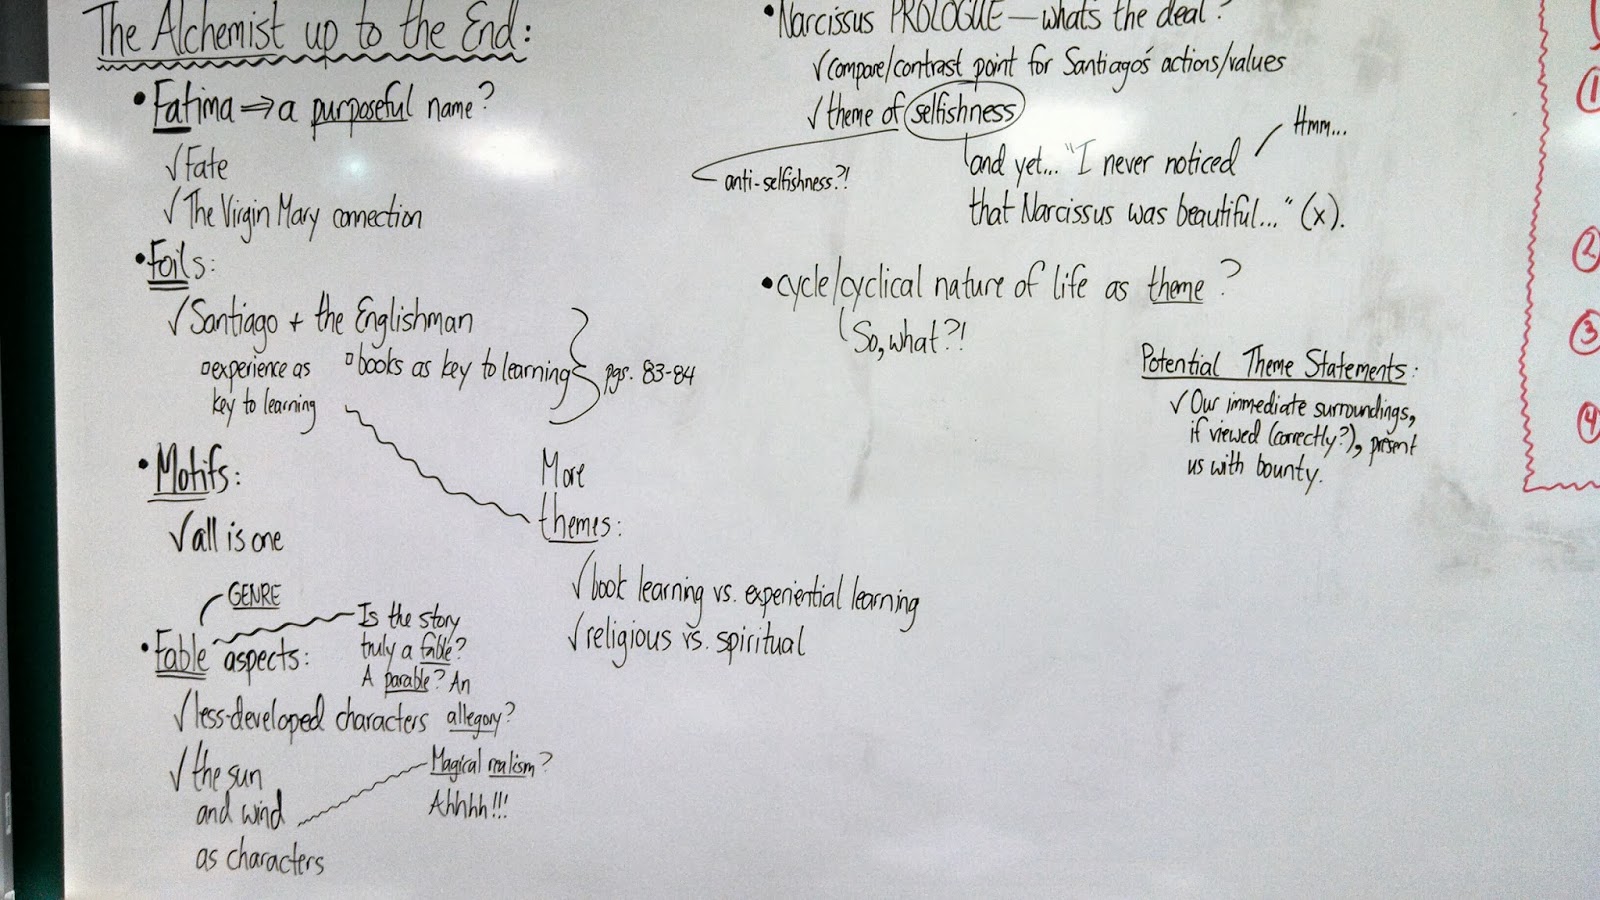 The Alchemist up to the End:
• Fatima ⇒ a purposeful name?
√ Fate
√ The Virgin Mary connection
• Foils:
√ Santiago + the Englishman
experience as
key to learning
books as key to learning
pgs. 83-84
• Motifs:
√ all is one
More
themes:
√ book learning vs. experiential learning
√ religious vs. spiritual
GENRE
• Fable aspects:
Is the story
truly a fable?
A parable? An
allegory?
√ less-developed characters
√ the sun
and wind
as characters
Magical realism?
Ahhhh!!!
• Narcissus PROLOGUE — whats the deal?
√ compare/contrast point for Santiago's actions/values
√ theme of selfishness
anti-selfishness?!
Hmm...
and yet... "I never noticed
that Narcissus was beautiful..." (x).
• cycle/cyclical nature of life as theme?
So, what?!
Potential Theme Statements:
√ Our immediate surroundings,
if viewed (correctly?), present
us with bounty.
1
2
3
4